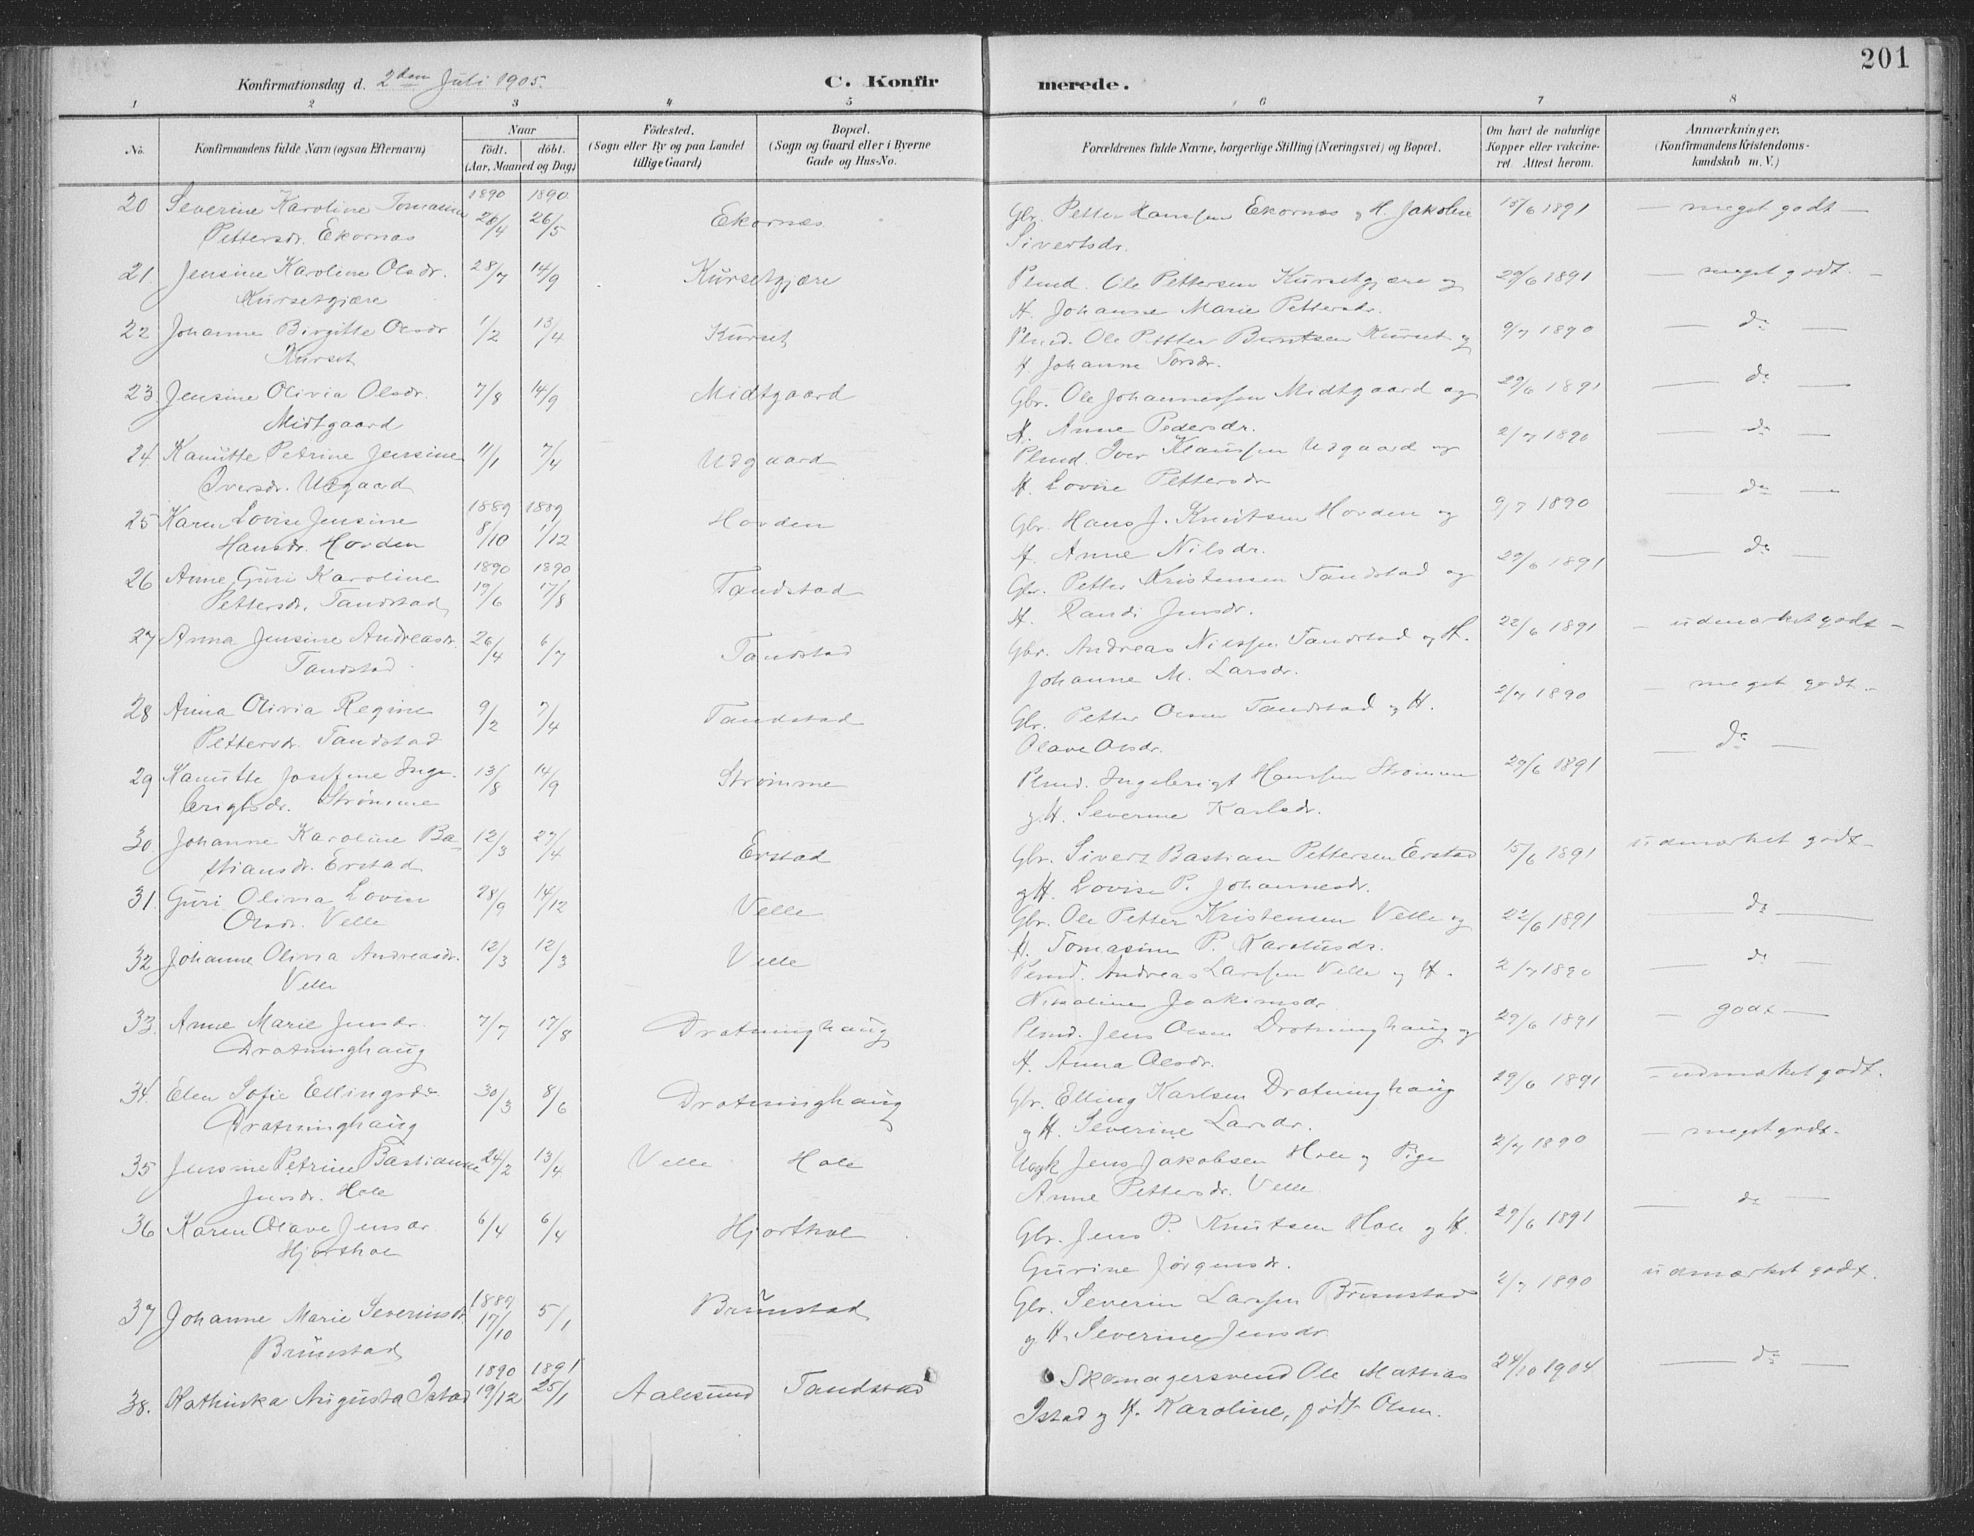 201
Konfirmationsdag d. 2den Juli 1905. C. Konfirmerede.
1 2 3 4 5 6 7 8
No. Konfirmandens fulde Navn (ogsaa Efternavn) Naar født. døbt. (Aar, Maaned og Dag) Fødested. (Sogn eller By og paa Landet tillige Gaard) Bopæl. (Sogn og Gaard eller i Byerne Gade og Hus-No. Forældrenes fulde Navne, borgerlige Stilling (Næringsvei) og Bopæl. Om havt de naturlige Kopper eller vakcineret Attest herom. Anmærkninger. (Konfirmandens Kristendomskundskab m. V.)
20 Severine Karoline Tomasine 1890 26/4 1890 26/5 Ekornæs Gbr. Petter Hanssen Ekornæs og H. Jakobine 15/6 1891 — meget godt —
Pettersdr. Ekornæs Sivertsdr.
21 Jensine Karoline Olsdr. 28/7 14/9 Kursetgjære Plmd. Ole Pettersen Kursetgjære og 29/6 1891 — meget godt. —
Kursetgjære H. Johanne Marie Pettersdr.
22 Johanne Birgitte Olsdr 1/2 13/4 Kurset Plmd. Ole Petter Berntsen Kurset og 9/7 1890 — do —
Kurset H Johanne Torsdr.
23 Jensine Olivia Olsdr. 7/8 14/9 Midtgaard Gbr. Ole Johannessen Midtgaard og 29/6 1891 — do —
Midtgaard H. Anne Pedersdr.
24 Kanutte Petrine Jensine 11/1 7/4 Udgaard Plmd. Iver Klaussen Udgaard og 2/7 1890 — do —
Iversdr. Udgaard H. Lovise Pettersdr
25 Karen Lovise Jensine 1889 8/10 1889 1/12 Hovden Gbr. Hans J. Knutsen Hovden og 9/7 1890 — do —
Hansdr. Hovden H. Anne Nilsdr.
26 Anne Guri Karoline 1890 19/6 1890 17/8 Tandstad Gbr. Petter Kristensen Tandstad og 29/6 1891 — do —
Pettersdr. Tandstad H. Randi Jensdr.
27 Anna Jensine Andreasdr. 26/4 6/7 Tandstad Gbr. Andreas Nilssen Tandstad og H. 22/6 1891 — udmærket godt —
Tandstad Johanne M. Larsdr.
28 Anna Olivia Regine 9/2 7/4 Tandstad Gbr. Petter Olsen Tandstad og H. 2/7 1890 — meget godt. —
Pettersdr. Tandstad Olave Olsdr.
29 Kanutte Josefine Inge- 13/8 14/9 Strømme Plmd. Ingebrigt Hanssen Strømme 29/6 1891 — do —
brigtsdr. Strømme og H. Severine Karlsdr.
30 Johanne Karoline Ba- 12/3 27/4 Erstad Gbr. Sivert Bastian Pettersen Erstad 15/6 1891 udmærket godt —
stiansdr. Erstad og H. Lovise P. Johannesdr.
31 Guri Olivia Lovise 28/9 14/12 Velle Gbr. Ole Petter Kristensen Velle og 22/6 1891 — do —
Olsdr. Velle H. Tomasine P. Karolusdr.
32 Johanne Olivia Andreasdr. 12/3 12/3 Velle Plmd. Andreas Larssen Velle og H. 2/7 1890 — do —
Velle Nikoline Joakimsdr
33 Anne Marie Jensdr. 7/7 17/8 Drotninghaug Plmd. Jens Olsen Drotninghaug og 29/6 1891 — godt —
Drotninghaug H. Anna Olsdr.
34. Elen Sofie Ellingsdr 30/3 8/6 Drotninghaug Gbr. Elling Karlsen Drotninghaug 29/6 1891 — udmærket godt.
Drotninghaug og H. Severine Larsdr.
35 Jensine Petrine Bastianne 24/2 13/4 Velle Hole Ungk Jens Jakobsen Hole og Pige 2/7 1890 — meget godt.
Jensdr. Hole Anne Pettersdr. Velle
36 Karen Olave Jensdr. 6/4 6/4 Hjorthol Gbr. Jens P. Knutsen Hole og H. 29/6 1891 — do —
Hjorthol Gurine Jørgensdr.
37 Johanne Marie Severinsdr 1889 17/10 5/1 Brunstad Gbr. Severin Larssen Brunstad 2/7 1890 udmærket godt.
Brunstad og H. Severine Jensdr
38. Kathinka Augusta Istad 1890 19/12 1891 25/1 Aalesund Tandstad Skomagersvend Ole Mathias 24/10 1904 — do —
Istad og H. Karoline, født Olsen.